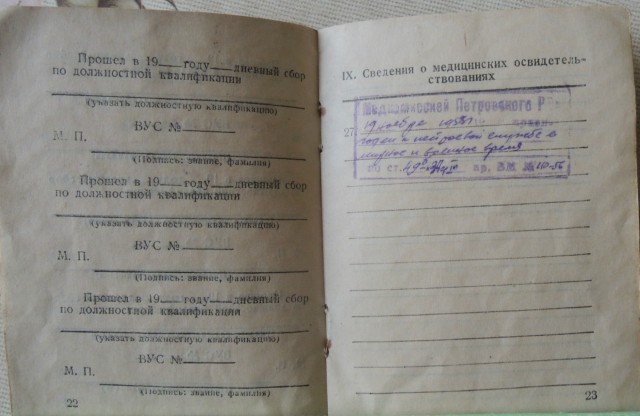 Прошел в 19___ году___дневный сбор
по должностной квалификации
(указать должностную квалификацию)
ВУС №
М. П.
(Подпись: звание, фамилия)
Прошел в 19___ году___дневный сбор
по должностной квалификации
(указать должностную квалификацию)
ВУС №
М. П.
(Подпись: звание, фамилия)
Прошел в 19___ году___дневный сбор
по должностной квалификации
(указать должностную квалификацию)
ВУС №
М. П.
(Подпись: звание, фамилия)
22
IX. Сведения о медицинских освидетель-
ствованиях
Медкомиссией Петровского
19 ноября
годен к нестроевой службе в
мирное и военное время
по ст. пр.
23